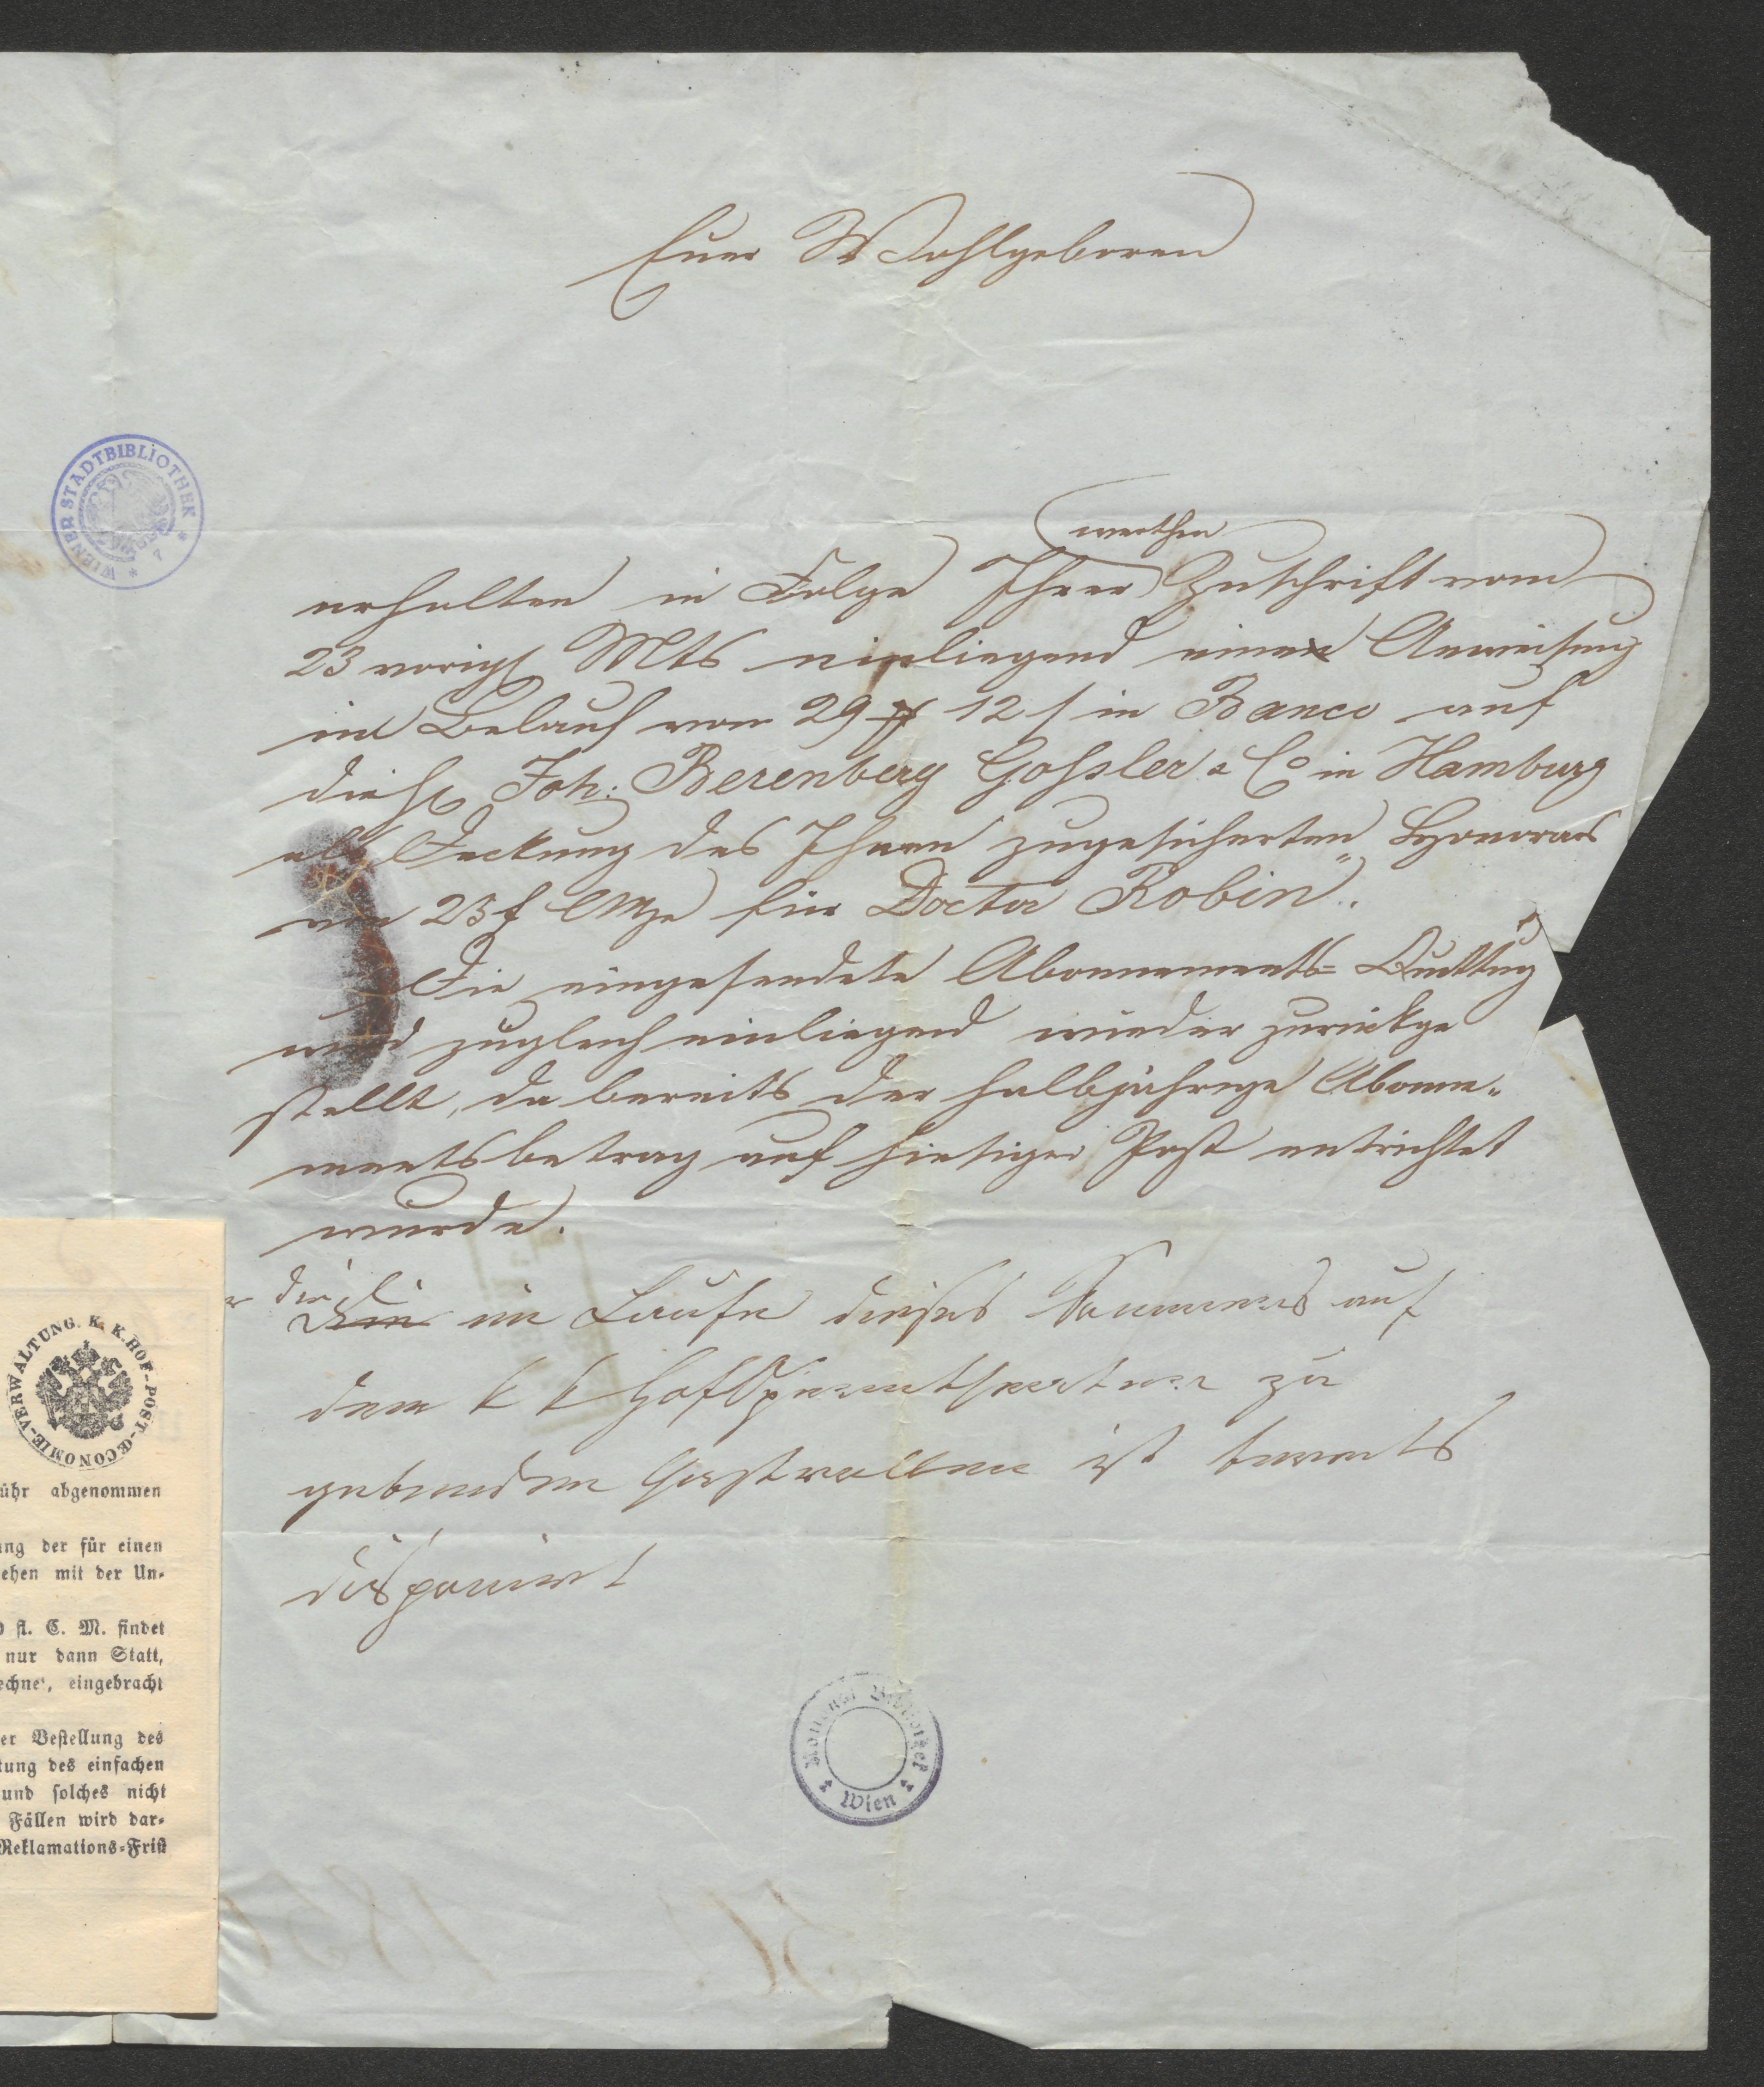 Euer Wohlgeboren
werthen
erhalten in Folge Ihrer Zuschrift vom
23 vorigs Mts einliegend eine Anweisung
im Belauf von 29 12 in Banco auf
die H Joh: Berenberg Gossler & Co in Hamburg
als Deckung des Ihnen zugesicherten Honorars
von 25 f CMze für "Doctor Robin".
Die eingesendete Abonnements-Quittug
wird zugleich einliegend wieder zurückge
stellt, da bereits der halbjährige Abonne-
mentsbetrag auf hiesiger Post entrichtet
wurde.
die
im Laufe dieses Sommers auf
dem k k Hofoperntheater zu
gebenden Gastrollen ist bereits
disponiert
WIENER STADTBIBLIOTHEK
VERWALTUNG. K. K. HOF-POST-ŒCONOMIE-
ühr abgenommen
ung der für einen
ehen mit der Un-
fl. C. M. findet
nur dann Statt,
echnet, eingebracht
er Bestellung des
tung des einfachen
und solches nicht
Fällen wird dar-
Reklamations-Frist
Bibliothek
Wien